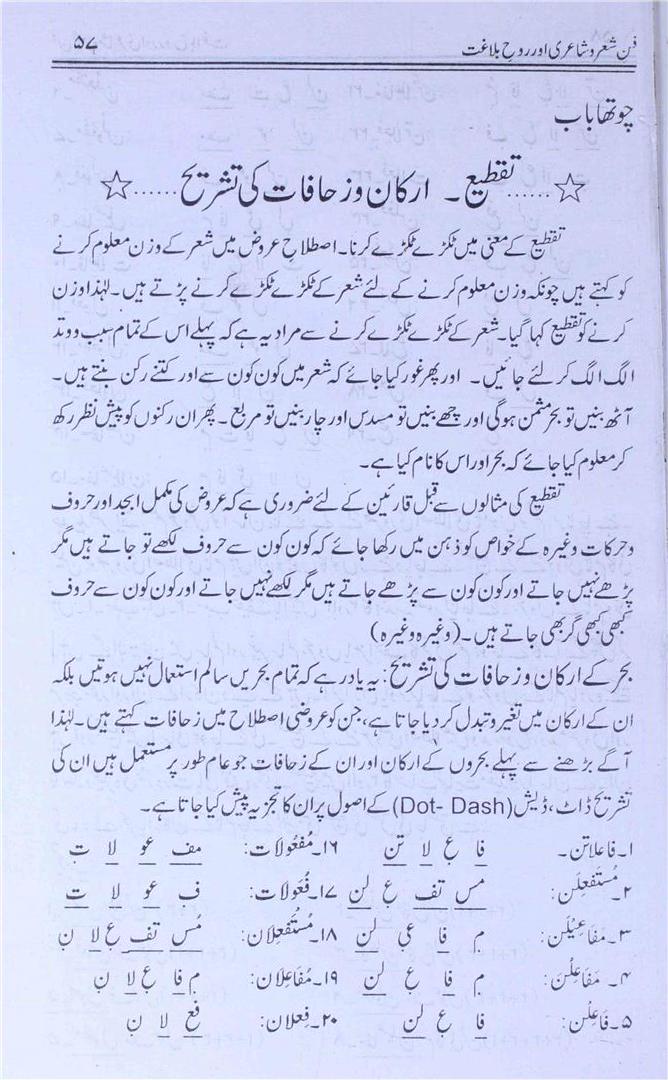 فن شعر و شاعری اور روحِ بلاغت ۵۷
چوتھا باب
☆......تقطیع ۔ ارکان و زحافات کی تشریح......☆
تقطیع کے معنی میں ٹکڑے ٹکڑے کرنا۔ اصطلاحِ عروض میں شعر کے وزن معلوم کرنے
کو کہتے ہیں چونکہ وزن معلوم کرنے کے لئے شعر کے ٹکڑے ٹکڑے کرنے پڑتے ہیں۔ لہٰذا وزن
کرنے کو تقطیع کہا گیا۔ شعر کے ٹکڑے ٹکڑے کرنے سے مراد یہ ہے کہ پہلے اس کے تمام سبب و وتد
الگ الگ کر لئے جائیں۔ اور پھر غور کیا جائے کہ شعر میں کون کون سے اور کتنے رکن بنتے ہیں۔
آٹھ بنیں تو بحر مثمن ہوگی اور چھے بنیں تو مسدس اور چار بنیں تو مربع۔ پھر ان رکنوں کو پیش نظر رکھ
کر معلوم کیا جائے کہ بحر اور اس کا نام کیا ہے۔
تقطیع کی مثالوں سے قبل قارئین کے لئے ضروری ہے کہ عروض کی مکمل ابجد اور حروف
و حرکات وغیرہ کے خواص کو ذہن میں رکھا جائے کہ کون کون سے حروف لکھے تو جاتے ہیں مگر
پڑھے نہیں جاتے اور کون کون سے پڑھے جاتے ہیں مگر لکھے نہیں جاتے اور کون کون سے حروف
کبھی کبھی گر بھی جاتے ہیں۔ (وغیرہ وغیرہ)
بحر کے ارکان و زحافات کی تشریح: یہ یاد رہے کہ تمام بحریں سالم استعمال نہیں ہوتیں بلکہ
ان کے ارکان میں تغیر و تبدل کر دیا جاتا ہے، جن کو عروضی اصطلاح میں زحافات کہتے ہیں۔ لہٰذا
آگے بڑھنے سے پہلے بحروں کے ارکان اور ان کے زحافات جو عام طور پر مستعمل ہیں ان کی
تشریح ڈاٹ، ڈیش (Dot- Dash) کے اصول پر ان کا تجزیہ پیش کیا جاتا ہے۔
۱۔ فاعلاتن۔ فا عِ لا تن ۱۶۔ مَفعُولات: مف عو لا ت
۲۔ مُستَفعِلن: مس تف عِ لن ۱۷۔ فَعُولات: ف عو لا ت
۳۔ مَفاعِیْلن: م فا عی لن ۱۸۔ مُستَفعِلان: مُس تف عِ لا ن
۴۔ مَفاعِلُن: م فا عِ لن ۱۹۔ مَفاعِلان: م فا عِ لا ن
۵۔ فاعِلُن: فا عِ لن ۲۰۔ فِعلان: فع لا ن